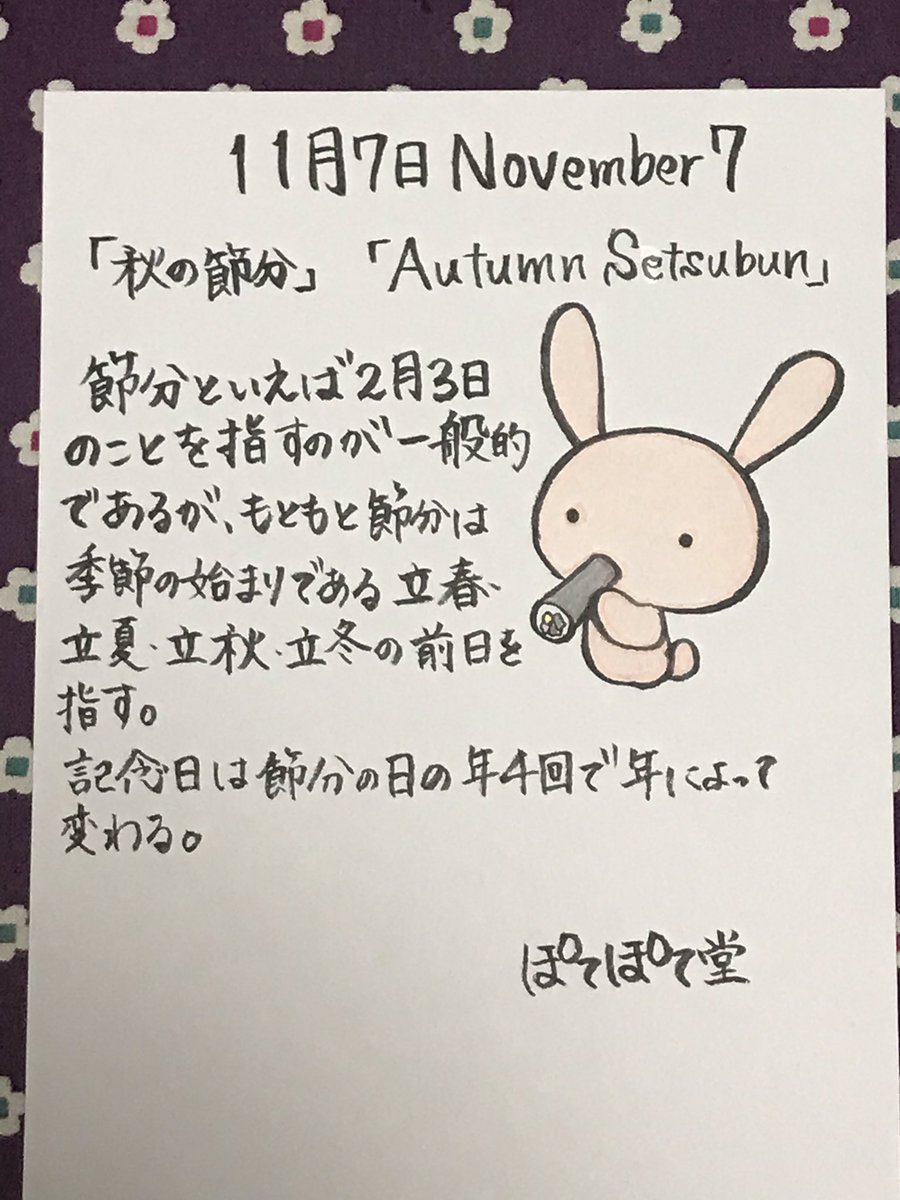 11月7日 November 7
「秋の節分」 「Autumn Setsubun」
節分といえば2月3日
のことを指すのが一般的
であるが、もともと節分は
季節の始まりである立春・
立夏・立秋・立冬の前日を
指す。
記念日は節分の日の年4回で年によって
変わる。
ぽてぽて堂